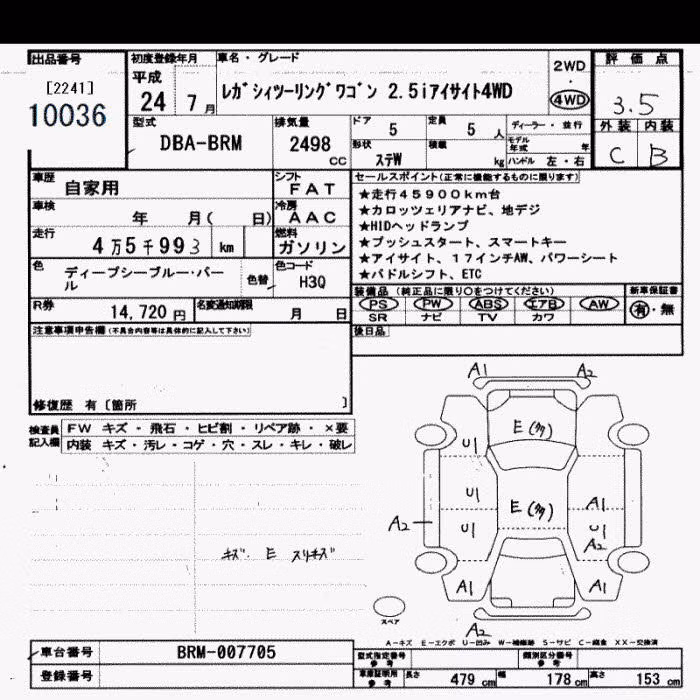 出品番号
[2241]
10036
初度登録年月
平成
24 7月
車名・グレード
ﾚｶﾞｼｨﾂｰﾘﾝｸﾞﾜｺﾞﾝ 2.5iｱｲｻｲﾄ4WD
2WD
・
4WD
評価点
3.5
外装 内装
C B
型式
DBA-BRM
排気量
2498
CC
ドア 5
定員 5 人
形状 ｽﾃW
積載 kg
ディーラー・並行
モデル年式 年
ハンドル 左・右
車歴 自家用
シフト FAT
車検 年 月( 日)
冷房 AAC
走行 4万5千993 km
燃料 ガソリン
色 ディープシーブルー・パール
色替
色コード H3Q
R券 14,720円
名変通知期限 月 日
セールスポイント(正常に機能するものに限ります)
★走行45900km台
★カロッツェリアナビ、地デジ
★HIDヘッドランプ
★プッシュスタート、スマートキー
★アイサイト、17インチAW、パワーシート
★パドルシフト、ETC
装備品 (純正品に限り○をつけてください)
PS PW ABS エアB AW
SR ナビ TV カワ
新車保証書
有・無
後日品
注意事項申告欄(不具合内容等は具体的に記入して下さい)
修復歴 有〔箇所 〕
検査員記入欄
FW キズ・飛石・ヒビ割・リペア跡・×要
内装 キズ・汚レ・コゲ・穴・スレ・キレ・破レ
キズ、E スリキズ
A1 A2
E(多)
U1
U1
E(多)
A1
A2
U1
U1
A2
A1
A1
A2
スペア
A-キズ E-エクボ U-凹み W-補修跡 S-サビ C-腐食 XX-交換済
車台番号 BRM-007705
登録番号
型式指定番号 参考
類別区分番号 参考
車庫証明用 参考
長さ 479 cm
幅 178 cm
高さ 153 cm